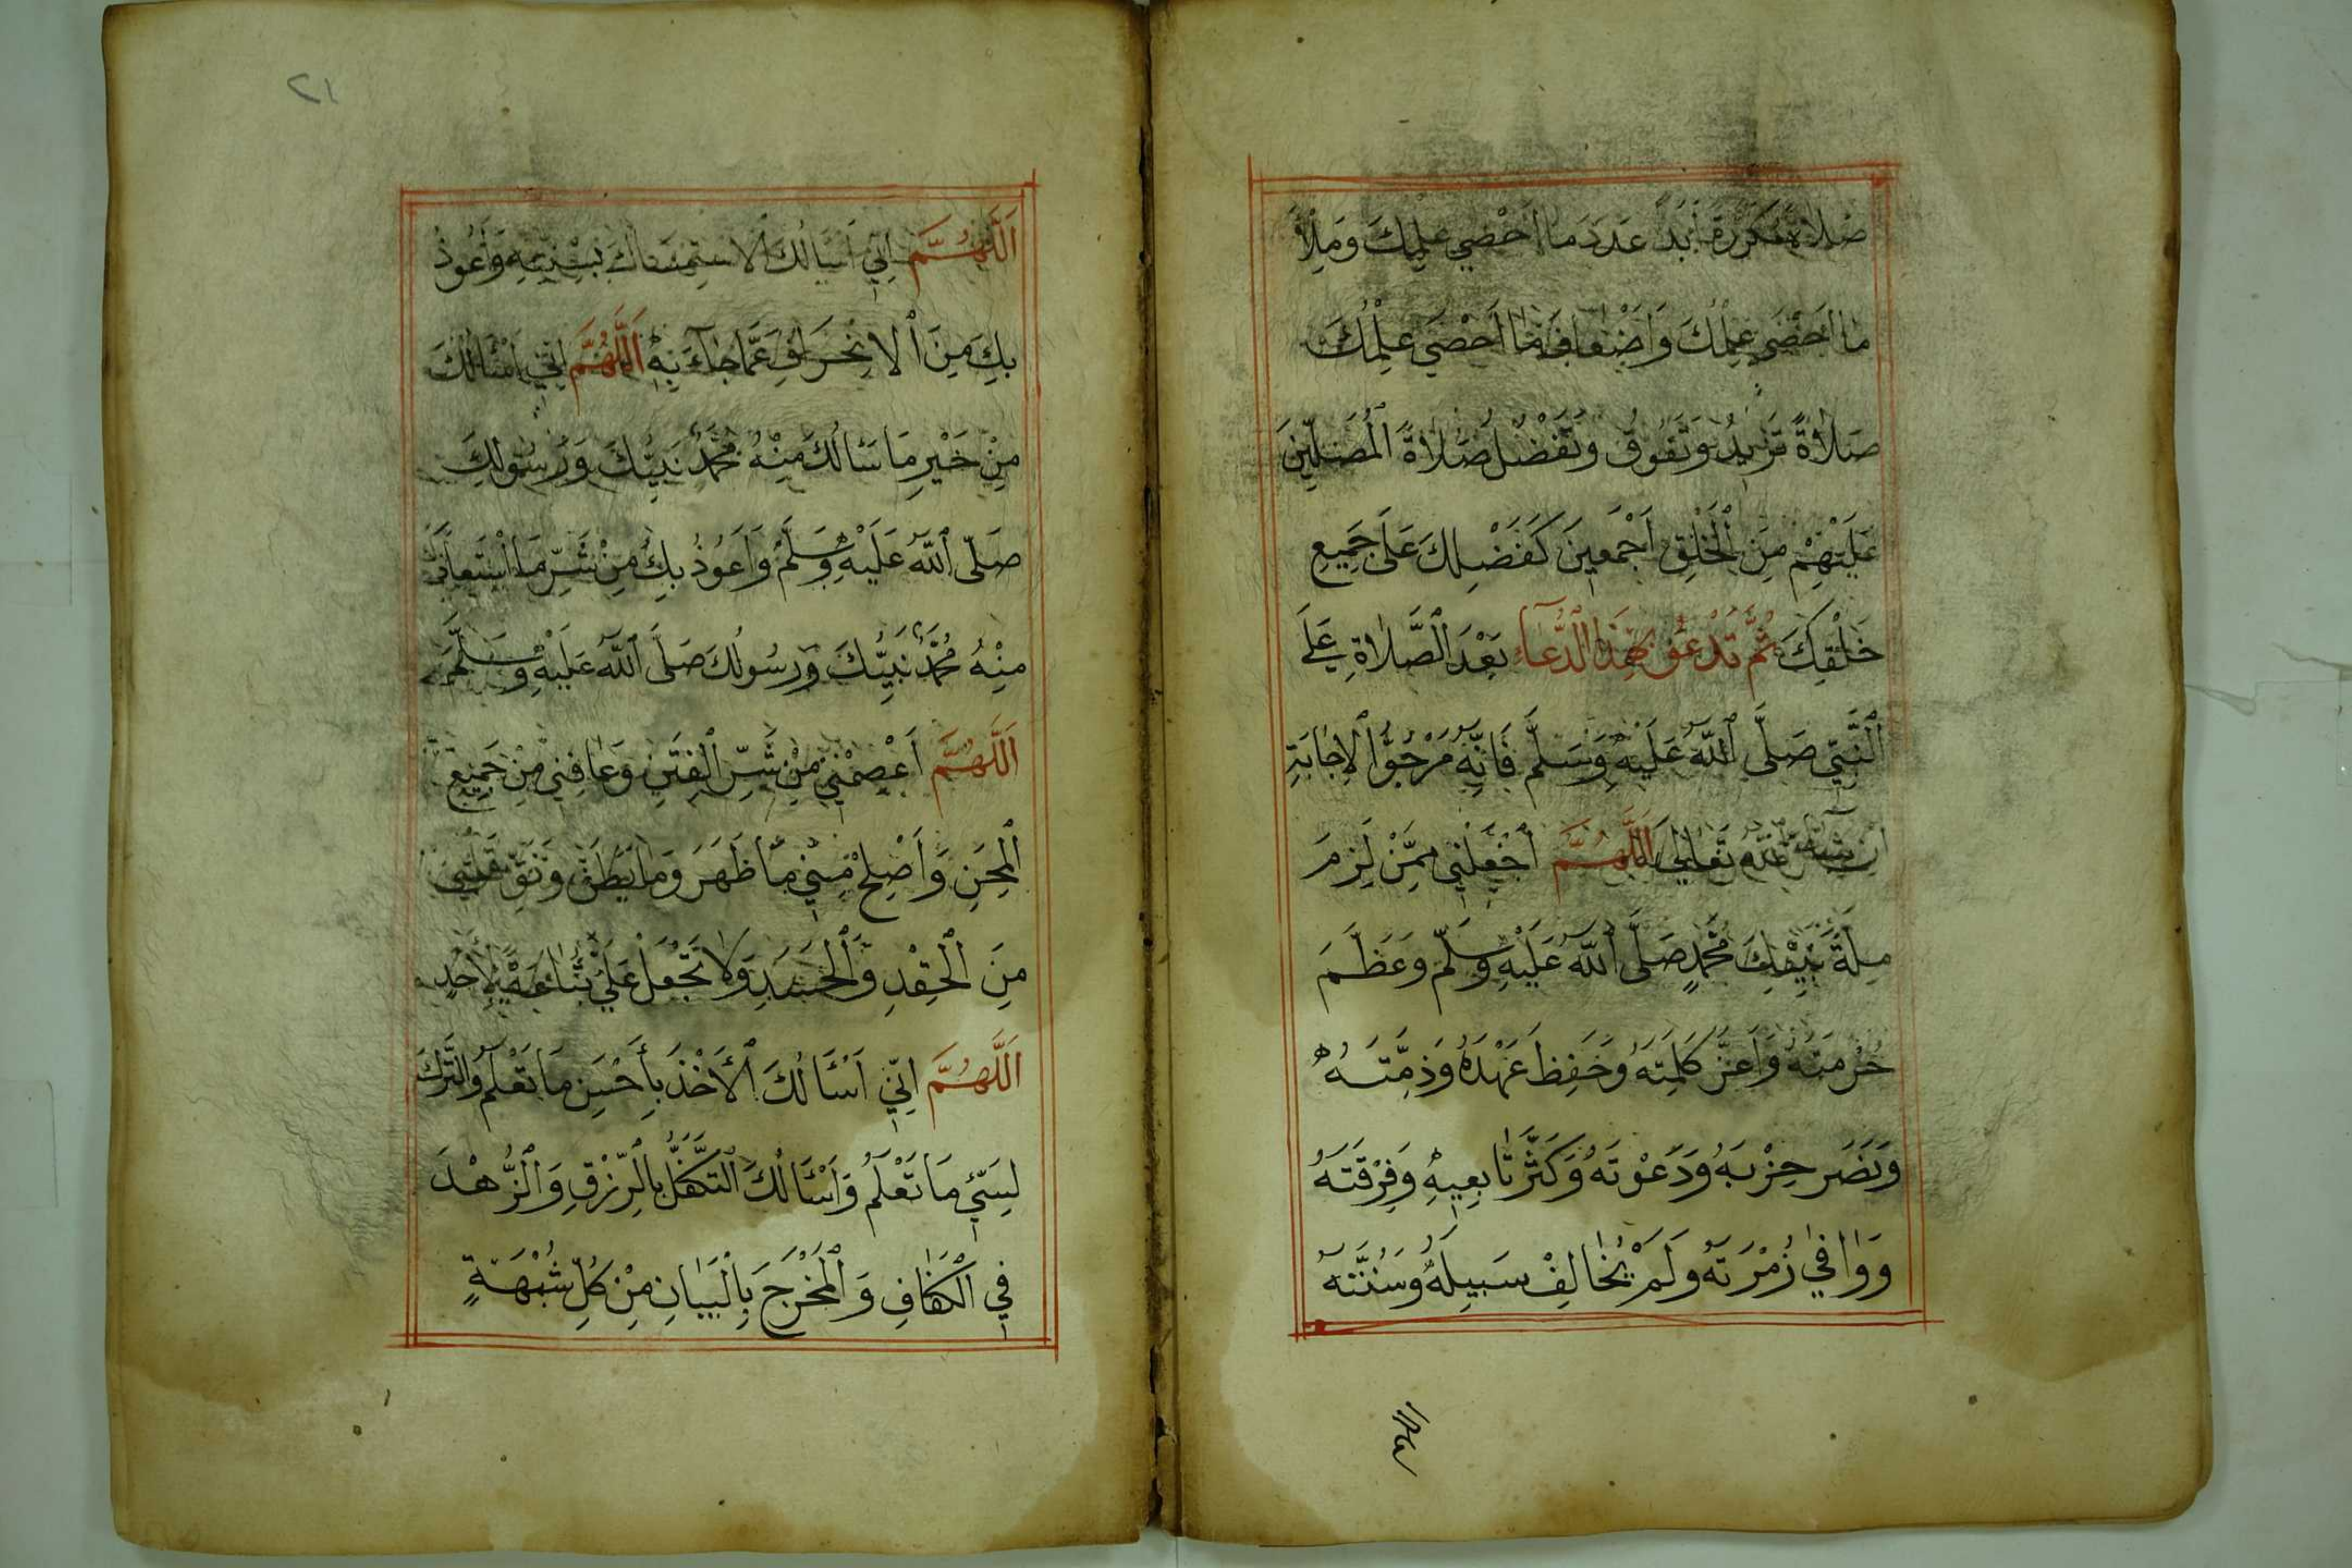 صَلَاةً مُكَرَّرَةً أَبَدًا عَدَدَ مَا أَحْصَى عِلْمُكَ وَمِلْأَ
مَا أَحْصَى عِلْمُكَ وَأَضْعَافَ مَا أَحْصَى عِلْمُكَ
صَلَاةً تَزِيدُ وَتَفُوقُ وَتَفْضُلُ صَلَاةَ الْمُصَلِّينَ
عَلَيْهِمْ مِنَ الْخَلْقِ أَجْمَعِينَ كَفَضْلِكَ عَلَى جَمِيعِ
خَلْقِكَ ثُمَّ تَدْعُو بِهَذَا الدُّعَاءِ بَعْدَ الصَّلَاةِ عَلَى
النَّبِيِّ صَلَّى اللهُ عَلَيْهِ وَسَلَّمَ فَإِنَّهُ مَرْجُوُّ الْإِجَابَةِ
إِنْ شَاءَ اللهُ تَعَالَى اَللَّهُمَّ اجْعَلْنِي مِمَّنْ لَزِمَ
مِلَّةَ نَبِيِّكَ مُحَمَّدٍ صَلَّى اللهُ عَلَيْهِ وَسَلَّمَ وَعَظَّمَ
حُرْمَتَهُ وَأَعَزَّ كَلِمَتَهُ وَحَفِظَ عَهْدَهُ وَذِمَّتَهُ
وَنَصَرَ حِزْبَهُ وَدَعْوَتَهُ وَكَثَّرَ تَابِعِيهِ وَفِرْقَتَهُ
وَوَافَى زُمْرَتَهُ وَلَمْ يُخَالِفْ سَبِيلَهُ وَسُنَّتَهُ
اللهم
٢١
اَللَّهُمَّ إِنِّي أَسْأَلُكَ الْاسْتِمْسَاكَ بِسُنَّتِهِ وَأَعُوذُ
بِكَ مِنَ الْانْحِرَافِ عَمَّا جَاءَ بِهِ اَللَّهُمَّ إِنِّي أَسْأَلُكَ
مِنْ خَيْرِ مَا سَأَلَكَ مِنْهُ مُحَمَّدٌ نَبِيُّكَ وَرَسُولُكَ
صَلَّى اللهُ عَلَيْهِ وَسَلَّمَ وَأَعُوذُ بِكَ مِنْ شَرِّ مَا اسْتَعَاذَكَ
مِنْهُ مُحَمَّدٌ نَبِيُّكَ وَرَسُولُكَ صَلَّى اللهُ عَلَيْهِ وَسَلَّمَ
اَللَّهُمَّ اعْصِمْنِي مِنْ شَرِّ الْفِتَنِ وَعَافِنِي مِنْ جَمِيعِ
الْمِحَنِ وَأَصْلِحْ مِنِّي مَا ظَهَرَ وَمَا بَطَنَ وَنَقِّ قَلْبِي
مِنَ الْحِقْدِ وَالْحَسَدِ وَلَا تَجْعَلْ عَلَيَّ تِبَاعَةً لِأَحَدٍ
اَللَّهُمَّ إِنِّي أَسْأَلُكَ الْأَخْذَ بِأَحْسَنِ مَا تَعْلَمُ وَالتَّرْكَ
لِسَيِّئِ مَا تَعْلَمُ وَأَسْأَلُكَ التَّكَفُّلَ بِالرِّزْقِ وَالزُّهْدَ
فِي الْكَفَافِ وَالْمَخْرَجَ بِالْبَيَانِ مِنْ كُلِّ شُبْهَةٍ